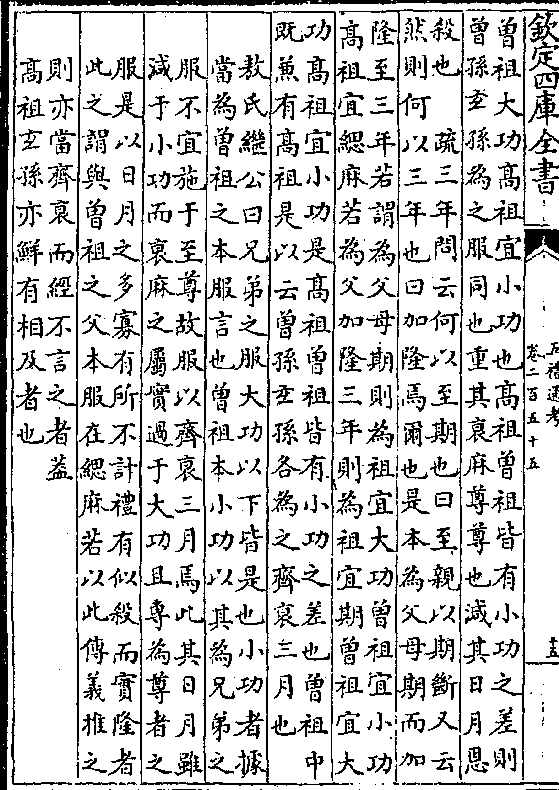 欽定四庫全書
五禮通考
卷二百五十五
十五
曾祖大功髙祖宜小功也髙祖曾祖皆有小功之差則
曾孫𤣥孫為之服同也重其衰麻尊尊也減其日月恩
殺也 疏三年問云何以至期也曰至親以期斷又云
然則何以三年也曰加隆焉爾也是本為父母期而加
隆至三年若謂為父母期則為祖宜大功曾祖宜小功
髙祖宜緦麻若為父加隆三年則為祖宜期曾祖宜大
功髙祖宜小功是髙祖曾祖皆有小功之差也曾祖中
既兼有髙祖是以云曾孫𤣥孫各為之齊衰三月也
敖氏繼公曰兄弟之服大功以下皆是也小功者據
當為曾祖之本服言也曾祖本小功以其為兄弟之
服不宜施于至尊故服以齊衰三月焉此其日月雖
減于小功而衰麻之屬實過于大功且專為尊者之
服是以日月之多寡有所不計禮有似殺而實隆者
此之謂與曾祖之父本服在緦麻若以此傳義推之
則亦當齊衰而經不言之者葢
髙祖𤣥孫亦鮮有相及者也